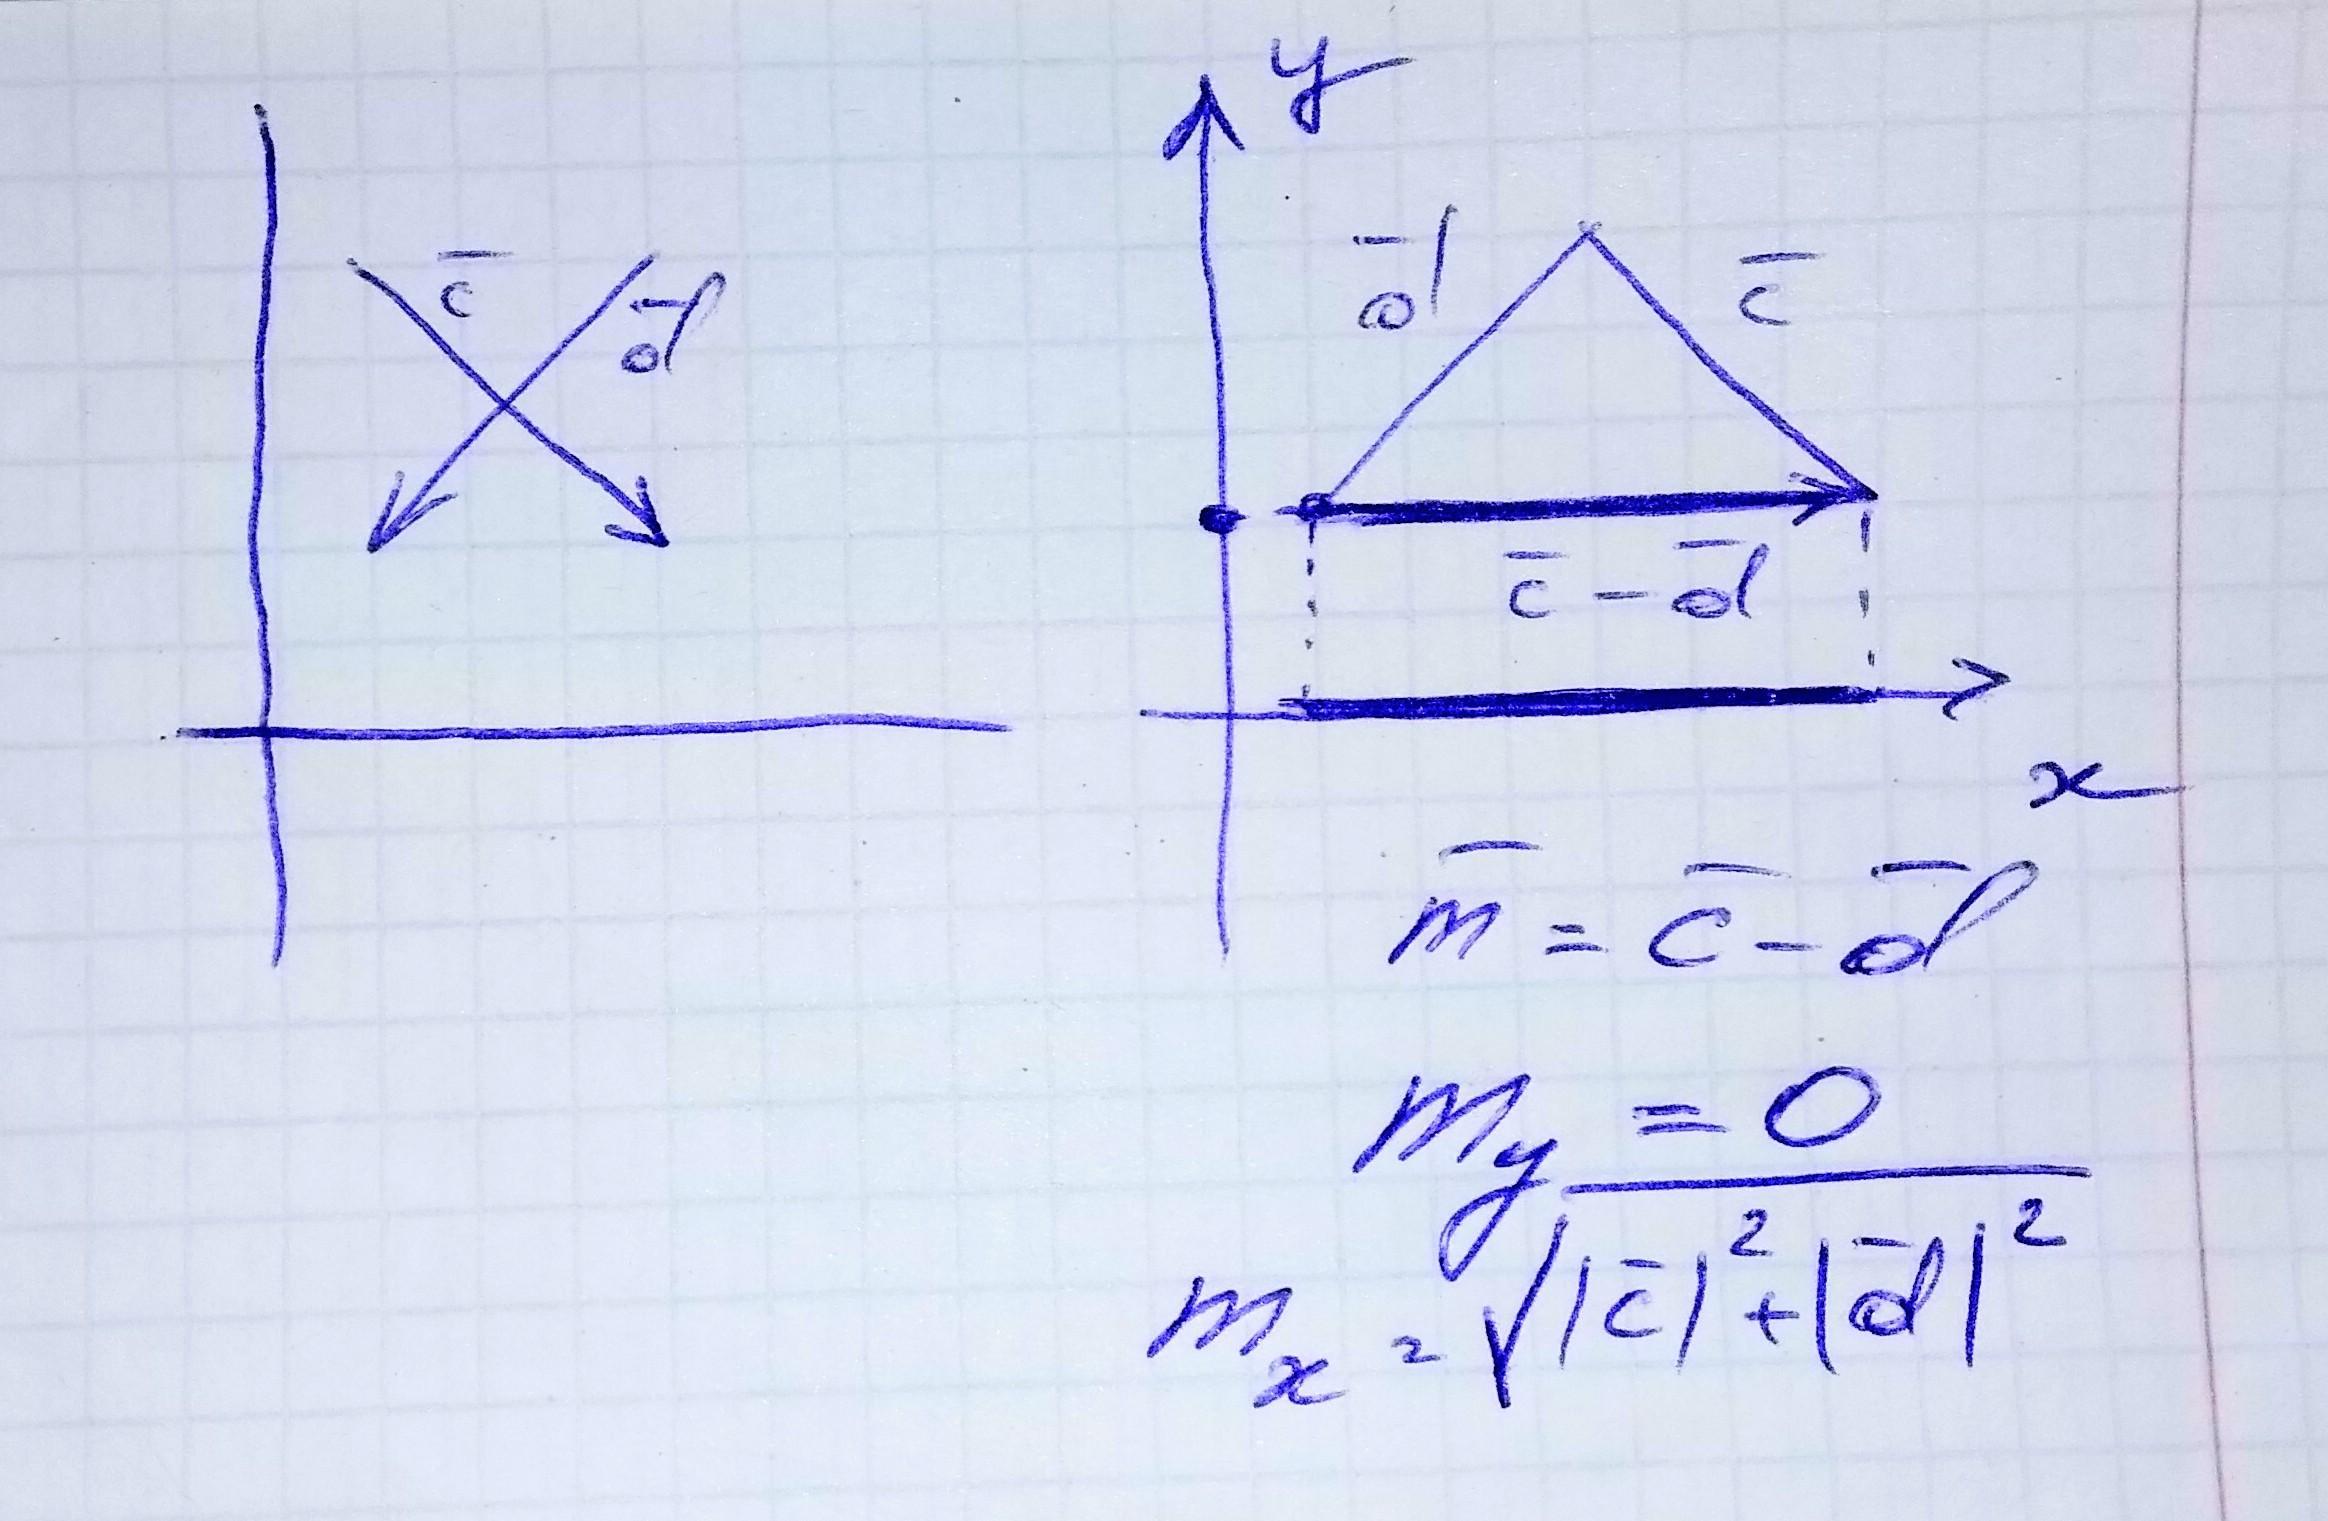 c̄ d̄
y
d̄ c̄
c̄ - d̄
x
m̄ = c̄ - d̄
m_y = 0
m_x = √|c̄|² + |d̄|²